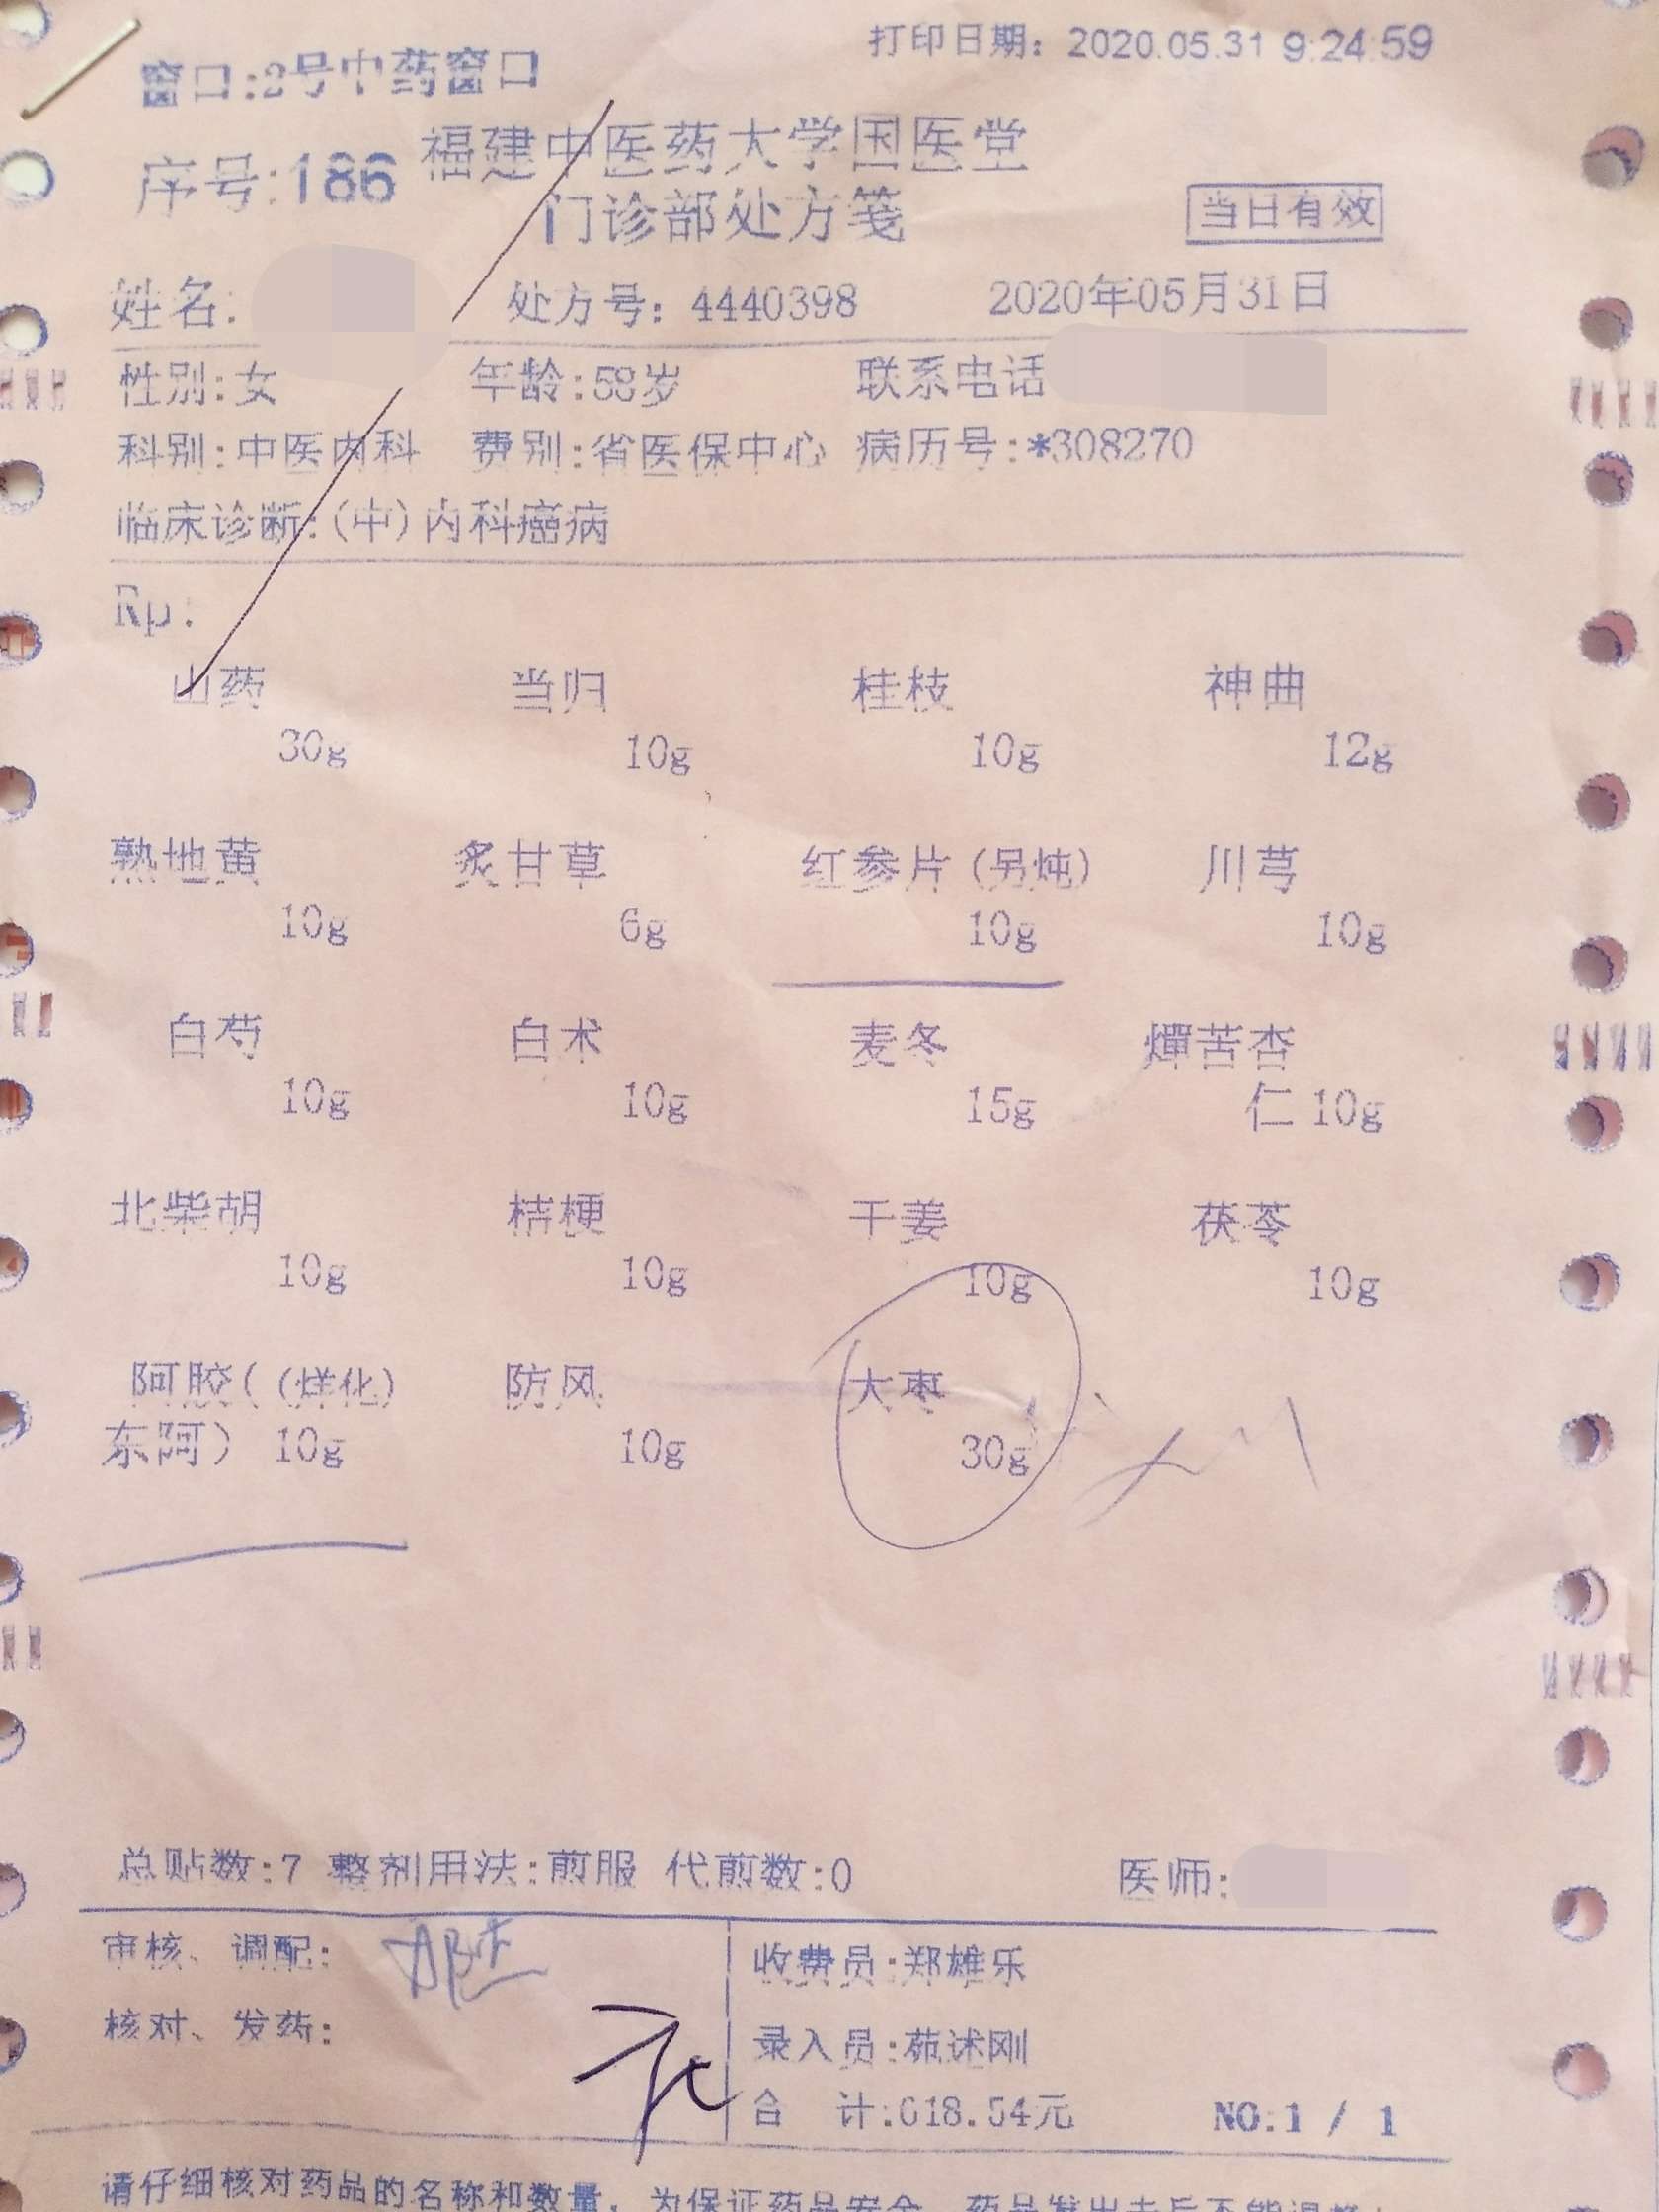 打印日期：2020.05.31 9:24:59
窗口:2号中药窗口
序号:186 福建中医药大学国医堂
门诊部处方笺 当日有效
姓名: 处方号：4440398 2020年05月31日
性别:女 年龄:58岁 联系电话
科别:中医内科 费别:省医保中心 病历号:*308270
临床诊断:(中)内科癌病
Rp:
山药 当归 桂枝 神曲
30g 10g 10g 12g
熟地黄 炙甘草 红参片(另炖) 川芎
10g 6g 10g 10g
白芍 白术 麦冬 燀苦杏
10g 10g 15g 仁 10g
北柴胡 桔梗 干姜 茯苓
10g 10g 10g 10g
阿胶( (烊化) 防风 大枣
东阿) 10g 10g 30g
总贴数:7 整剂用法:煎服 代煎数:0 医师:
审核、调配: 收费员:郑雄乐
核对、发药: 录入员:苑述刚
合 计:618.54元 NO:1 / 1
请仔细核对药品的名称和数量，为保证药品安全，药品发出去后不能调整